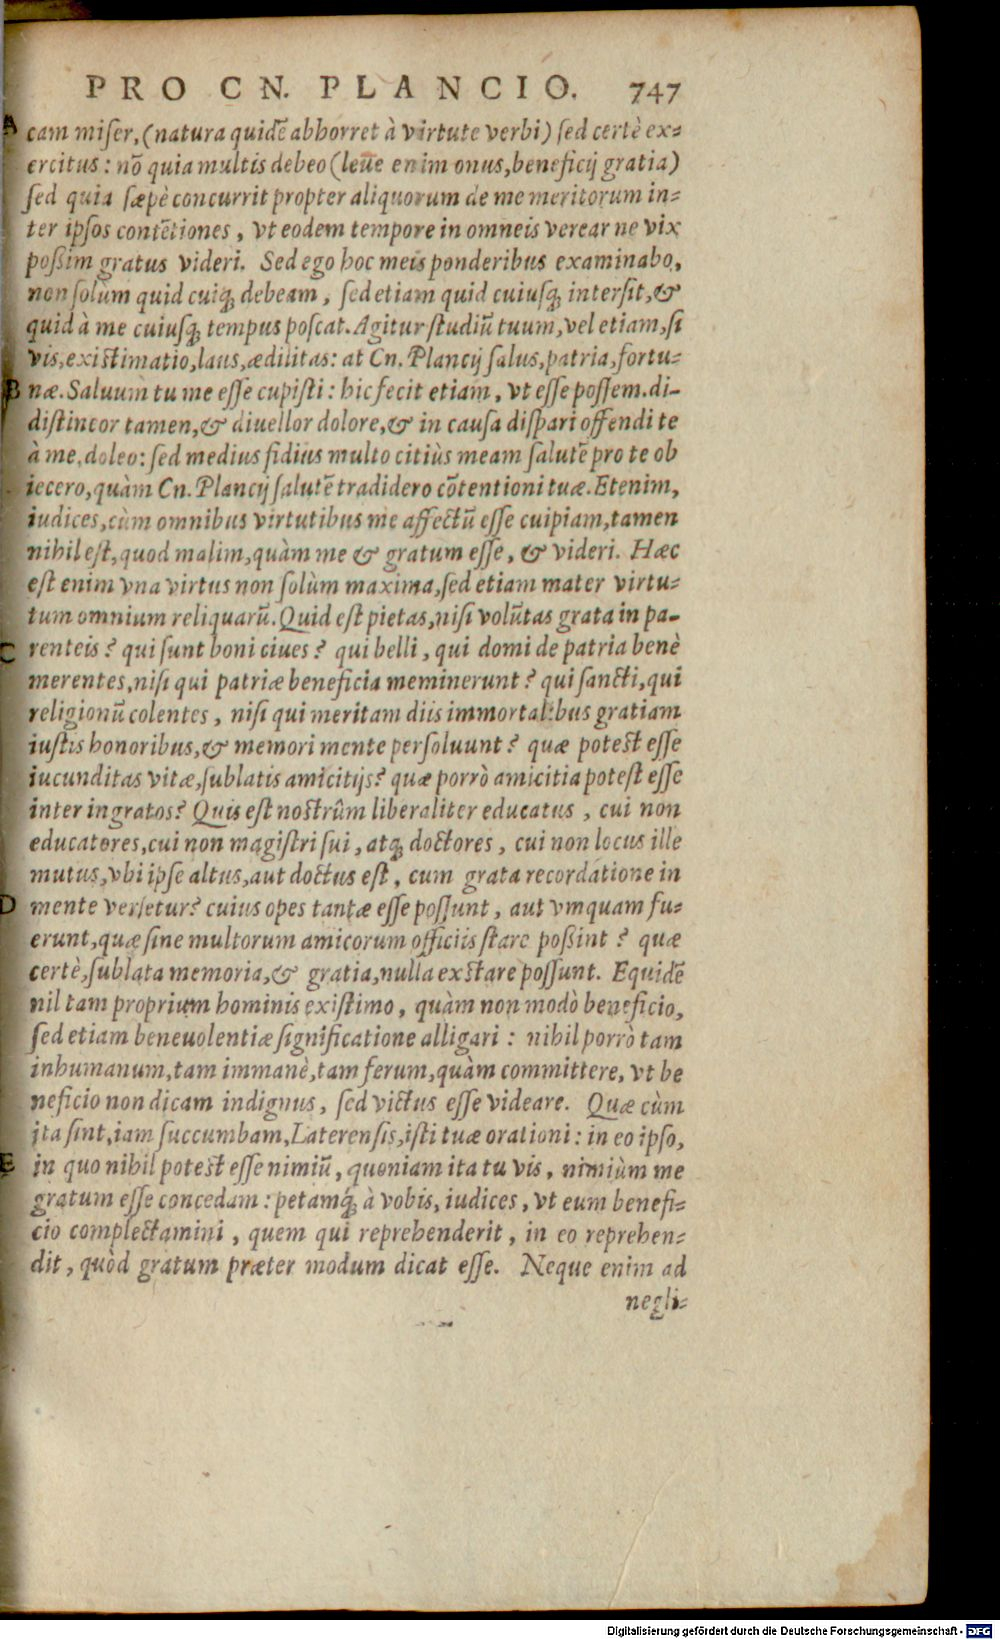 PRO CN. PLANCIO. 747
A
cam miser, (natura quidē abhorret à virtute verbi) sed certè ex-
ercitus: nō quia multis debeo (leue enim onus, beneficij gratia)
sed quia sæpè concurrit propter aliquorum de me meritorum in-
ter ipsos contētiones, vt eodem tempore in omneis verear ne vix
possim gratus videri. Sed ego hoc meis ponderibus examinabo,
non solùm quid cuiq; debeam, sed etiam quid cuiusq; intersit, &
quid à me cuiusq; tempus poscat. Agitur studiū tuum, vel etiam, si
vis, existimatio, laus, ædilitas: at Cn. Plancij salus, patria, fortu-
B
næ. Saluum tu me esse cupisti: hic fecit etiam, vt esse possem. di-
distincor tamen, & diuellor dolore, & in causa dispari offendi te
à me, doleo: sed medius fidius multo citiùs meam salutē pro te ob
iecero, quàm Cn. Plancij salutē tradidero cōtentioni tuæ. Etenim,
iudices, cùm omnibus virtutibus me affectū esse cuipiam, tamen
nihil est, quod malim, quàm me & gratum esse, & videri. Hæc
est enim vna virtus non solùm maxima, sed etiam mater virtu-
tum omnium reliquarū. Quid est pietas, nisi volūtas grata in pa-
C
renteis? qui sunt boni ciues? qui belli, qui domi de patria benè
merentes, nisi qui patriæ beneficia meminerunt? qui sancti, qui
religionū colentes, nisi qui meritam diis immortalibus gratiam
iustis honoribus, & memori mente persoluunt? quæ potest esse
iucunditas vitæ, sublatis amicitijs? quæ porrò amicitia potest esse
inter ingratos? Quis est nostrûm liberaliter educatus, cui non
educatores, cui non magistri sui, atq; doctores, cui non locus ille
mutus, vbi ipse altus, aut doctus est, cum grata recordatione in
D
mente versetur? cuius opes tantæ esse possunt, aut vmquam fu-
erunt, quæ sine multorum amicorum officiis stare possint? quæ
certè, sublata memoria, & gratia, nulla exstare possunt. Equidē
nil tam proprium hominis existimo, quàm non modò beneficio,
sed etiam beneuolentiæ significatione alligari: nihil porrò tam
inhumanum, tam immanè, tam ferum, quàm committere, vt be
neficio non dicam indignus, sed victus esse videare. Quæ cùm
ita sint, iam succumbam, Laterensis, isti tuæ orationi: in eo ipso,
E
in quo nihil potest esse nimiū, quoniam ita tu vis, nimiùm me
gratum esse concedam: petamq́; à vobis, iudices, vt eum benefi-
cio complectamini, quem qui reprehenderit, in eo reprehen-
dit, quòd gratum præter modum dicat esse. Neque enim ad
negli-
Digitalisierung gefördert durch die Deutsche Forschungsgemeinschaft - DFG